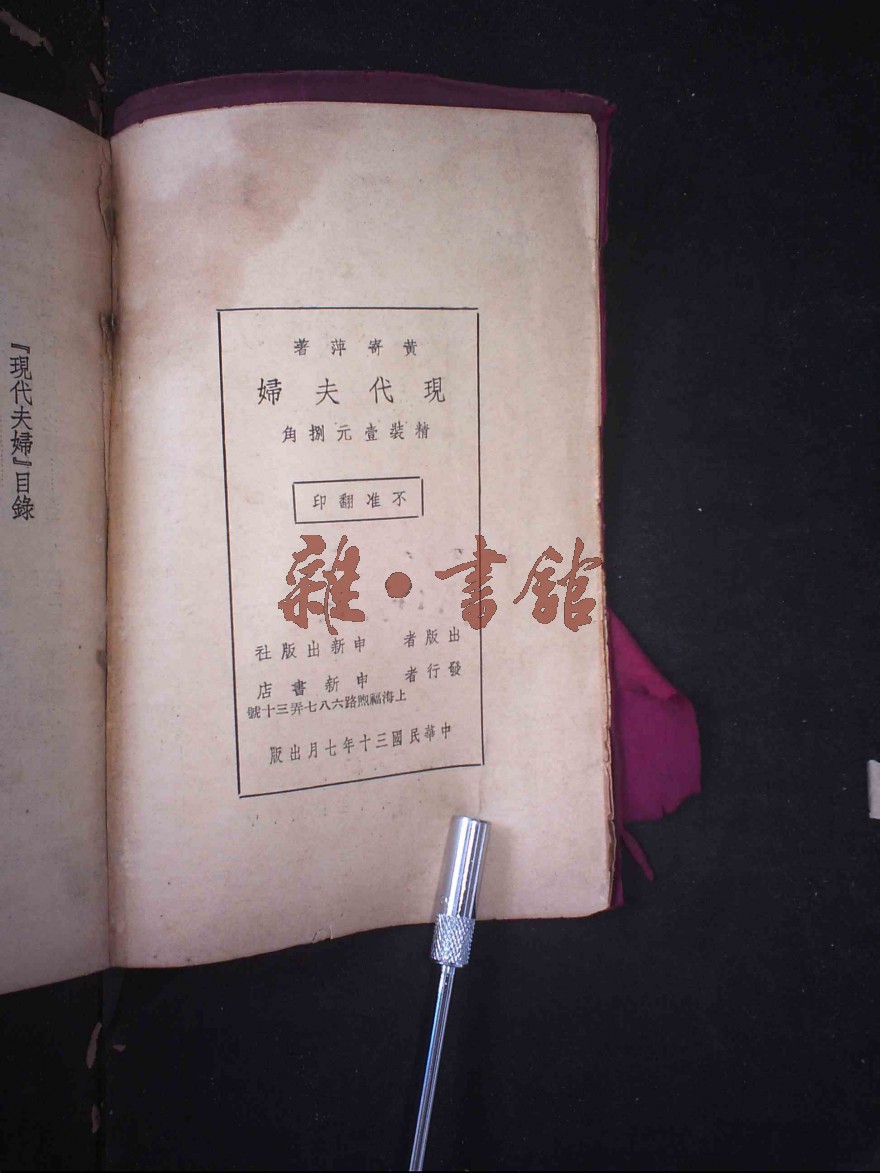 黃寄萍著
現代夫婦
精裝壹元捌角
不准翻印
出版者 申新出版社
發行者 申新書店
上海福煦路六八七弄三十號
中華民國三十年七月出版
『現代夫婦』目錄
雜·書館